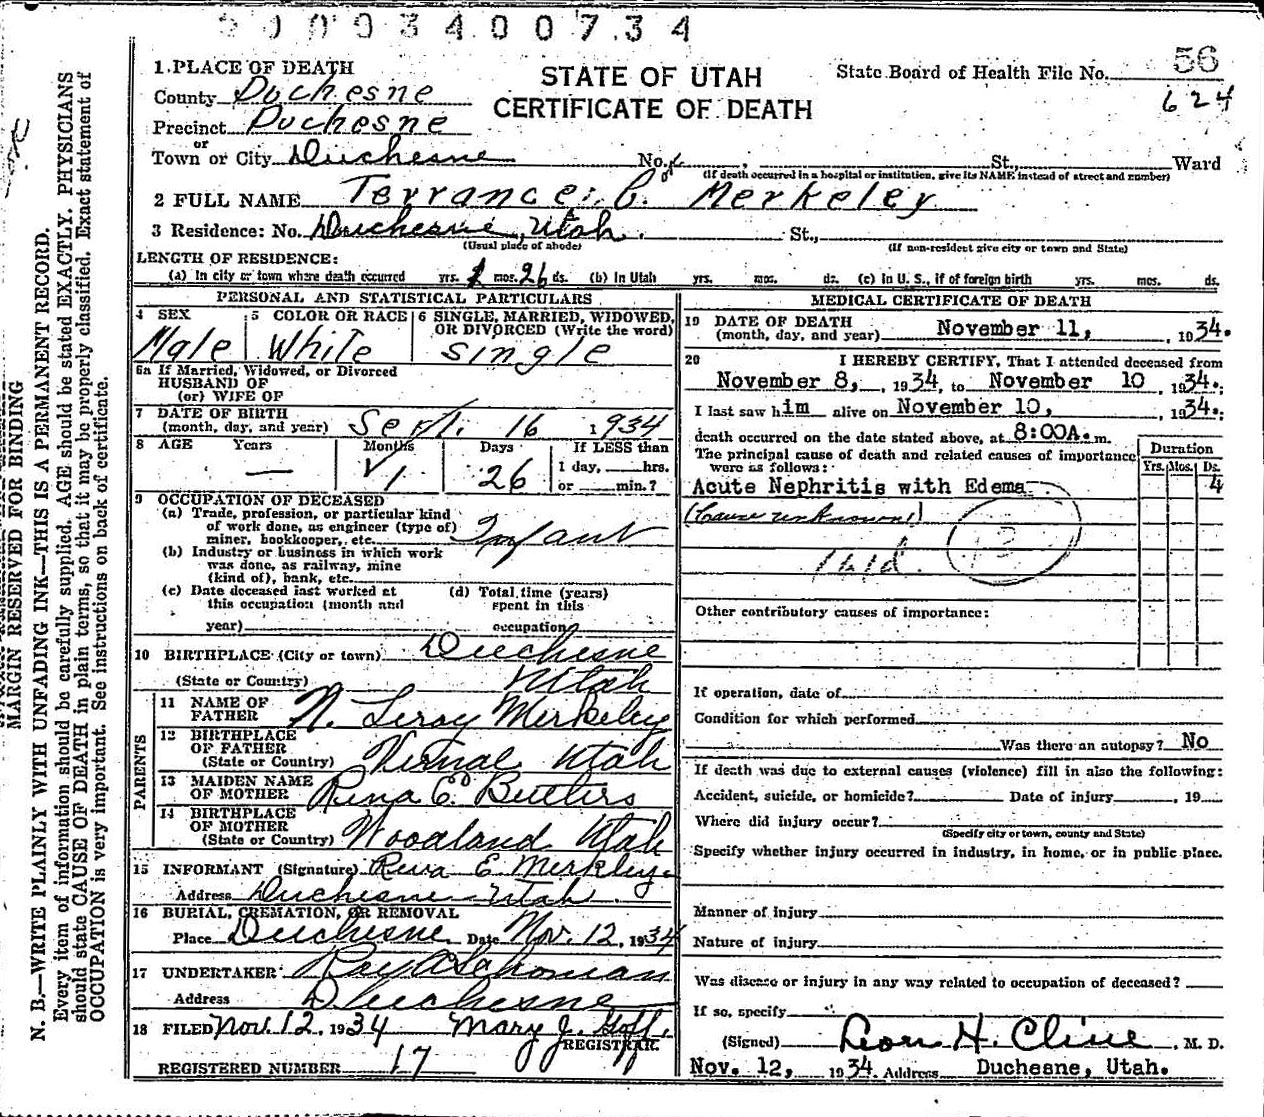 0003400734
56
1. PLACE OF DEATH
STATE OF UTAH
CERTIFICATE OF DEATH
State Board of Health File No.
624
County Duchesne
Precinct Duchesne
or
Town or City Duchesne No. , St., Ward
(If death occurred in a hospital or institution, give its NAME instead of street and number)
2 FULL NAME Terrance C. Merkeley
3 Residence: No. Duchesne, Utah. St.,
(Usual place of abode) (If non-resident give city or town and State)
LENGTH OF RESIDENCE:
(a) In city or town where death occurred yrs. 1 mos. 26 ds. (b) In Utah yrs. mos. ds. (c) In U. S., if of foreign birth yrs. mos. ds.
PERSONAL AND STATISTICAL PARTICULARS
4 SEX
Male
5 COLOR OR RACE
White
6 SINGLE, MARRIED, WIDOWED, OR DIVORCED (Write the word)
single
6a If Married, Widowed, or Divorced
HUSBAND OF
(or) WIFE OF
7 DATE OF BIRTH
(month, day, and year) Sept. 16 1934
8 AGE Years Months Days If LESS than
— 1 26 1 day, hrs.
or min.?
9 OCCUPATION OF DECEASED
(a) Trade, profession, or particular kind
of work done, as engineer (type of)
miner, bookkeeper, etc. Infant
(b) Industry or business in which work
was done, as railway, mine
(kind of), bank, etc.
(c) Date deceased last worked at
this occupation (month and
year)
(d) Total time (years)
spent in this
occupation
10 BIRTHPLACE (City or town) Duchesne
(State or Country) Utah
PARENTS
11 NAME OF
FATHER N. Leroy Merkeley
12 BIRTHPLACE
OF FATHER
(State or Country) Vernal Utah
13 MAIDEN NAME
OF MOTHER E. Butters
14 BIRTHPLACE
OF MOTHER
(State or Country) Woodland Utah
15 INFORMANT (Signature) Reva E. Merkley
Address Duchesne Utah.
16 BURIAL, CREMATION, OR REMOVAL
Place Duchesne Date Nov. 12, 1934
17 UNDERTAKER Ray
Address Duchesne
18 FILED Nov. 12, 1934 Mary J. Goff.
REGISTRAR.
REGISTERED NUMBER 17
MEDICAL CERTIFICATE OF DEATH
19 DATE OF DEATH
(month, day, and year) November 11, 1934.
20 I HEREBY CERTIFY, That I attended deceased from
November 8, 1934, to November 10, 1934.;
I last saw him alive on November 10, 1934.;
death occurred on the date stated above, at 8:00A.m.
The principal cause of death and related causes of importance
were as follows:
Duration
Yrs. Mos. Ds.
Acute Nephritis with Edema. 4
(Cause unknown)
13
Other contributory causes of importance:
If operation, date of
Condition for which performed
Was there an autopsy? No
If death was due to external causes (violence) fill in also the following:
Accident, suicide, or homicide? Date of injury , 19
Where did injury occur?
(Specify city or town, county and State)
Specify whether injury occurred in industry, in home, or in public place.
Manner of injury
Nature of injury
Was disease or injury in any way related to occupation of deceased?
If so, specify
(Signed) Leon H. Cline, M. D.
Nov. 12, 1934. Address Duchesne, Utah.
MARGIN RESERVED FOR BINDING
N. B.—WRITE PLAINLY WITH UNFADING INK—THIS IS A PERMANENT RECORD.
Every item of information should be carefully supplied. AGE should be stated EXACTLY. PHYSICIANS
should state CAUSE OF DEATH in plain terms, so that it may be properly classified. Exact statement of
OCCUPATION is very important. See instructions on back of certificate.